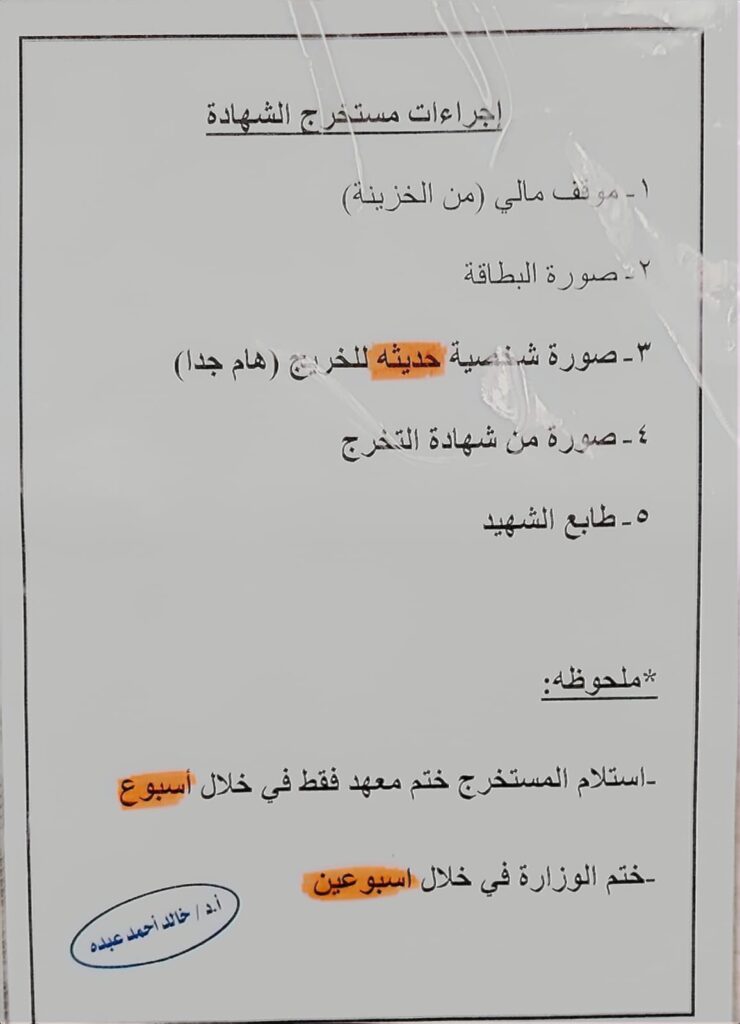 إجراءات مستخرج الشهادة
١- موقف مالي (من الخزينة)
٢- صورة البطاقة
٣- صورة شخصية حديثه للخريج (هام جدا)
٤- صورة من شهادة التخرج
٥- طابع الشهيد
*ملحوظه:
-استلام المستخرج ختم معهد فقط في خلال أسبوع
-ختم الوزارة في خلال اسبوعين
أ.د / خالد أحمد عبده